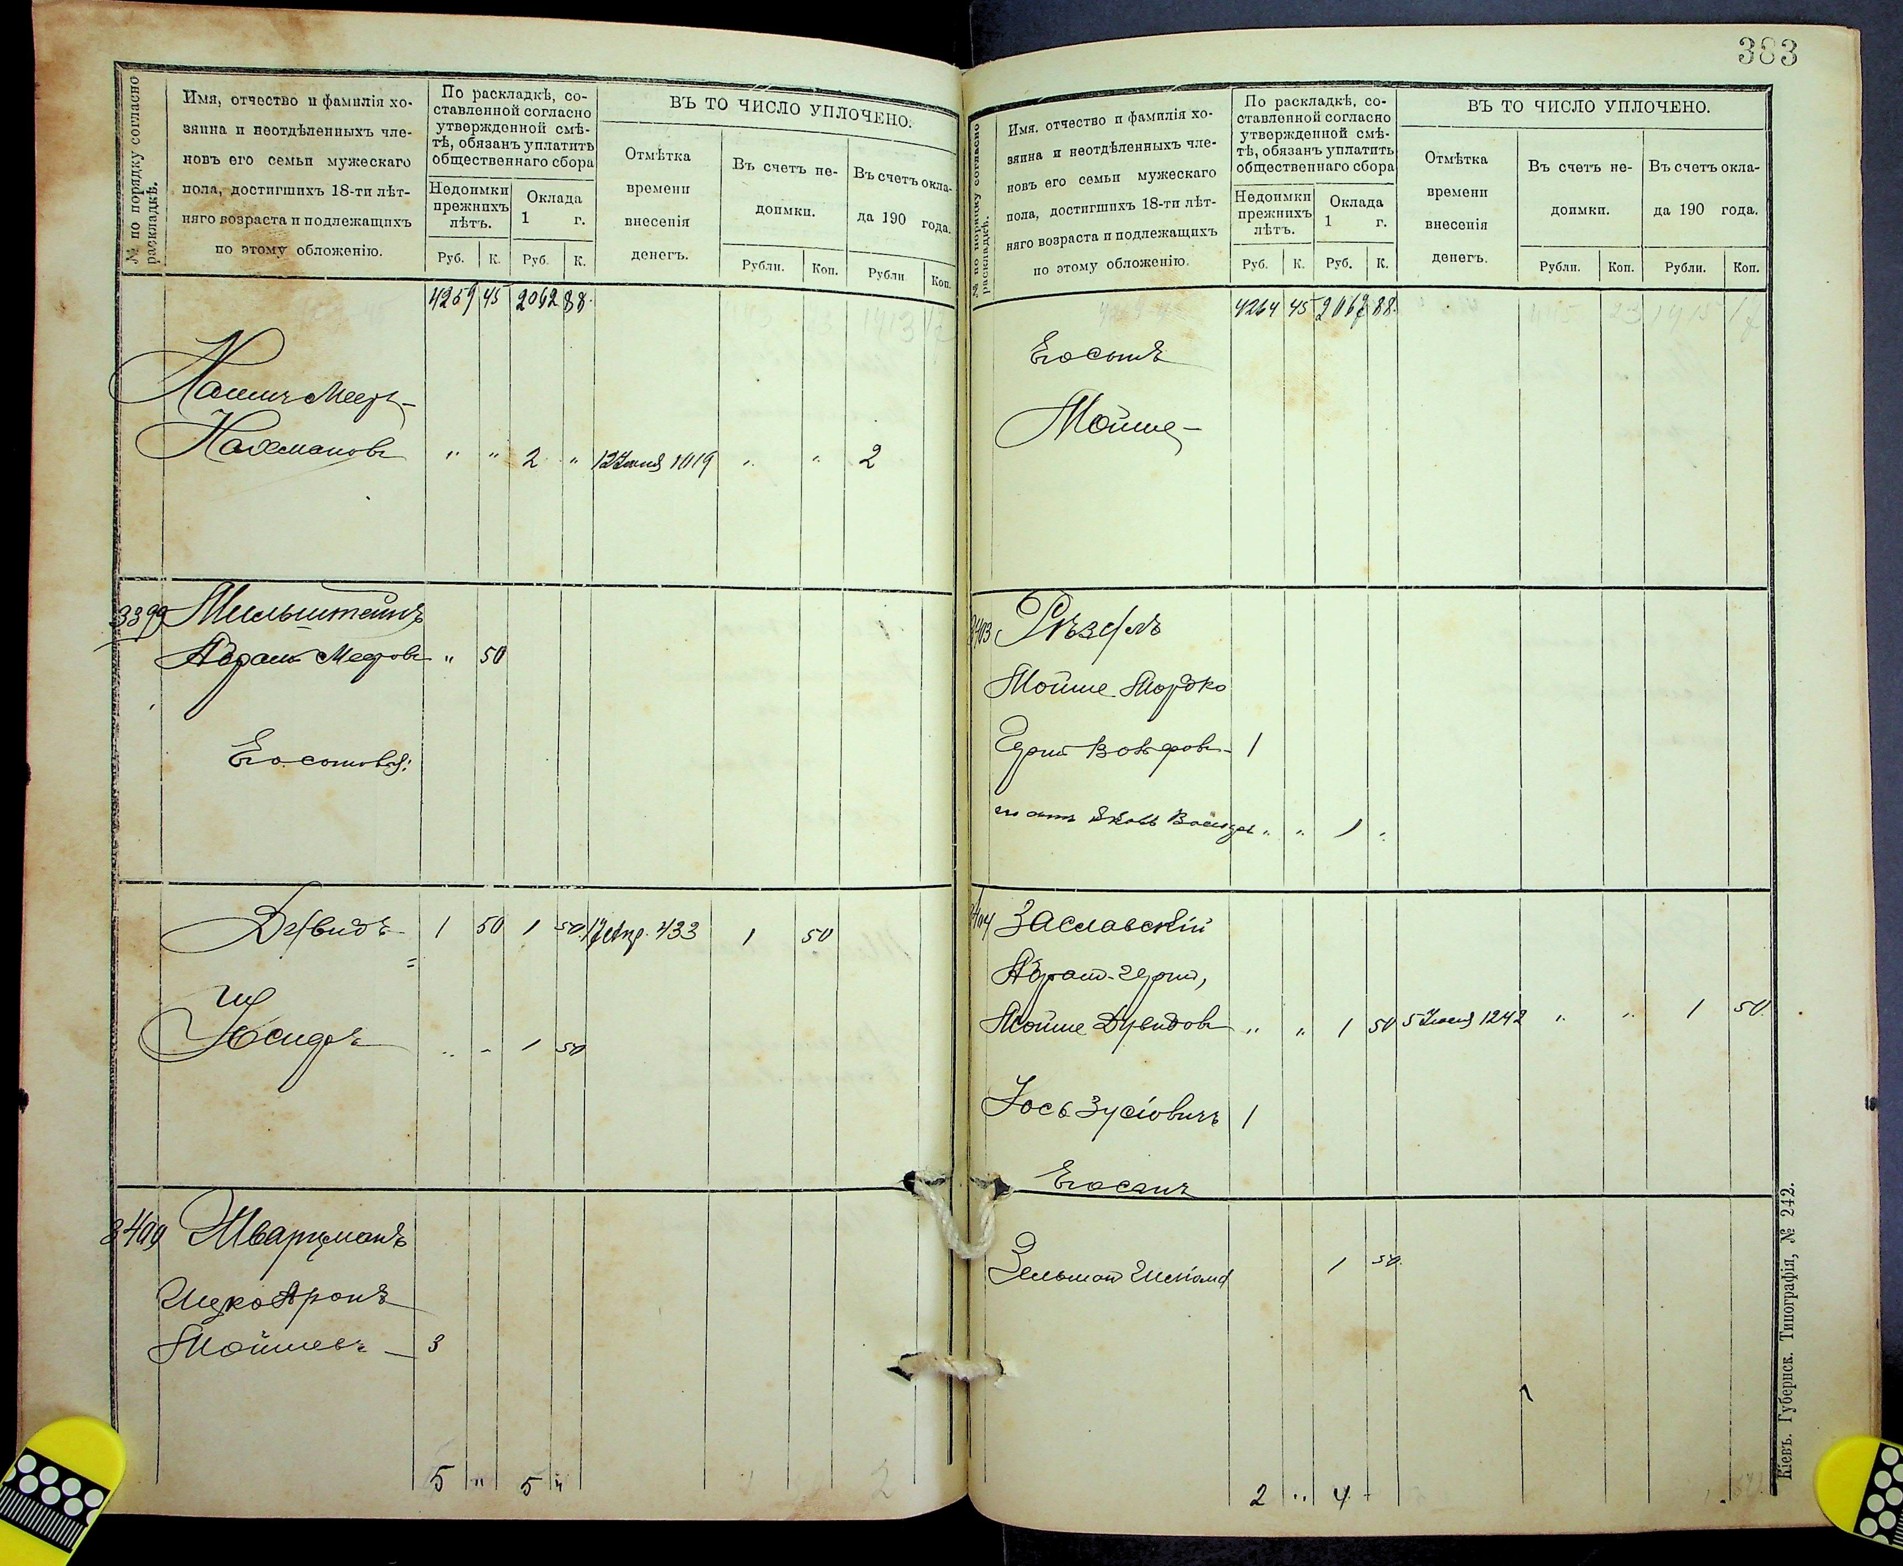 № по порядку согласно раскладкѣ.
Имя, отчество и фамилія хо-
зяина и неотдѣленныхъ чле-
новъ его семьи мужескаго
пола, достигшихъ 18-ти лѣт-
няго возраста и подлежащихъ
по этому обложенію.
По раскладкѣ, со-
ставленной согласно
утвержденной смѣ-
тѣ, обязанъ уплатить
общественнаго сбора
Недоимки
прежнихъ
лѣтъ.
Оклада
1 г.
Руб. К. Руб. К.
ВЪ ТО ЧИСЛО УПЛОЧЕНО.
Отмѣтка
времени
внесенія
денегъ.
Въ счетъ не-
доимки.
Рубли. Коп.
Въ счетъ окла-
да 190 года.
Рубли Коп.
4259 45 2062 88
Мееръ
Нахмановъ " " 2 " 12 Іюня 1019 " " 2
3399 Мильштейнъ
Абрамъ Мееровъ " 50
Его сыновья:
Давидъ 1 50 1 50 17 Апр. 433 1 50
и
" " 1 50
3400 Шварцманъ
Ицко Аронъ
Мошковъ 3
5 " 5 "
383
№ по порядку согласно раскладкѣ.
Имя, отчество и фамилія хо-
зяина и неотдѣленныхъ чле-
новъ его семьи мужескаго
пола, достигшихъ 18-ти лѣт-
няго возраста и подлежащихъ
по этому обложенію.
По раскладкѣ, со-
ставленной согласно
утвержденной смѣ-
тѣ, обязанъ уплатить
общественнаго сбора
Недоимки
прежнихъ
лѣтъ.
Оклада
1 г.
Руб. К. Руб. К.
ВЪ ТО ЧИСЛО УПЛОЧЕНО.
Отмѣтка
времени
внесенія
денегъ.
Въ счетъ не-
доимки.
Рубли. Коп.
Въ счетъ окла-
да 190 года.
Рубли. Коп.
4264 45 2067 88
Его сынъ
Мойше
3403
Мойше Мордко
Герш 1
Яковъ " " 1 "
3404 Заславскій
Абрам-Герш,
Мойше Дувидовъ " " 1 50 5 Іюня 1242 " " 1 50
Іось Зусіовичъ 1
Его сынъ
Зельман 1 50
2 " 4 -
Кіевъ. Губернск. Типографія, № 242.